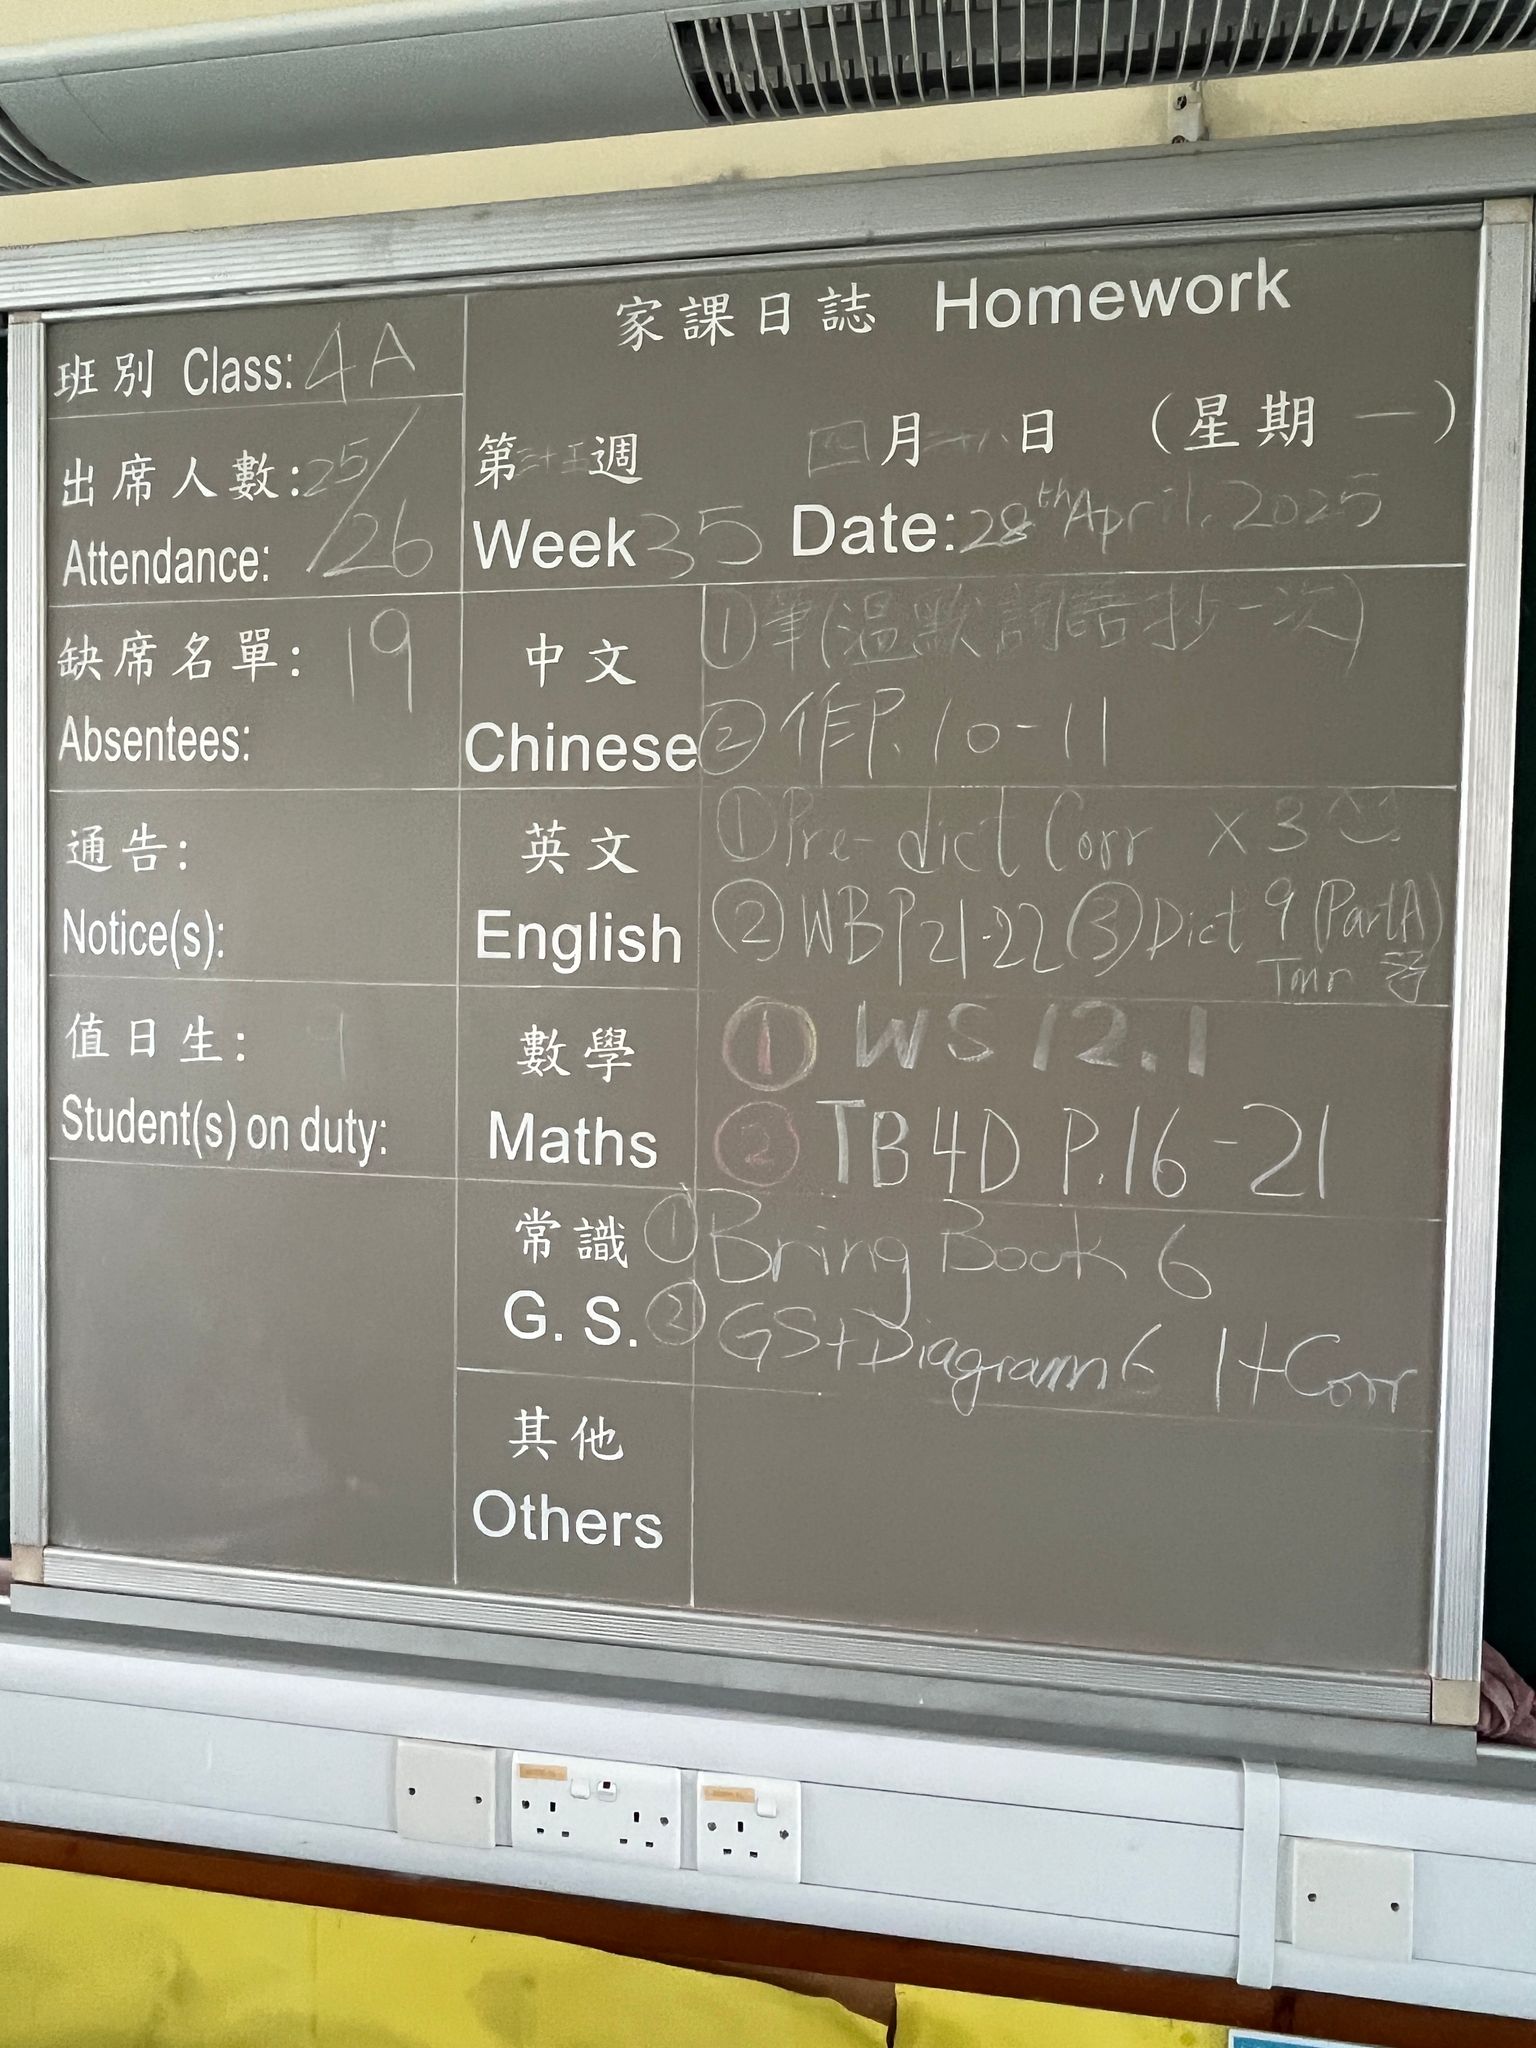 家課日誌 Homework
班別 Class: 4A
出席人數: 25/26
Attendance:
缺席名單: 19
Absentees:
通告:
Notice(s):
值日生: 1
Student(s) on duty:
第三十五週 四月二十八日 (星期一)
Week 35 Date: 28th April, 2025
中文
Chinese
①筆(温默詞語抄一次)
②作P.10-11
英文
English
①Pre-dict Corr ×3
②WB P21-22 ③Dict 9 (Part A)
Tmr
數學
Maths
① WS 12.1
② TB 4D P.16-21
常識
G. S.
① Bring Book 6
② GS+Diagram 6 1+Corr
其他
Others